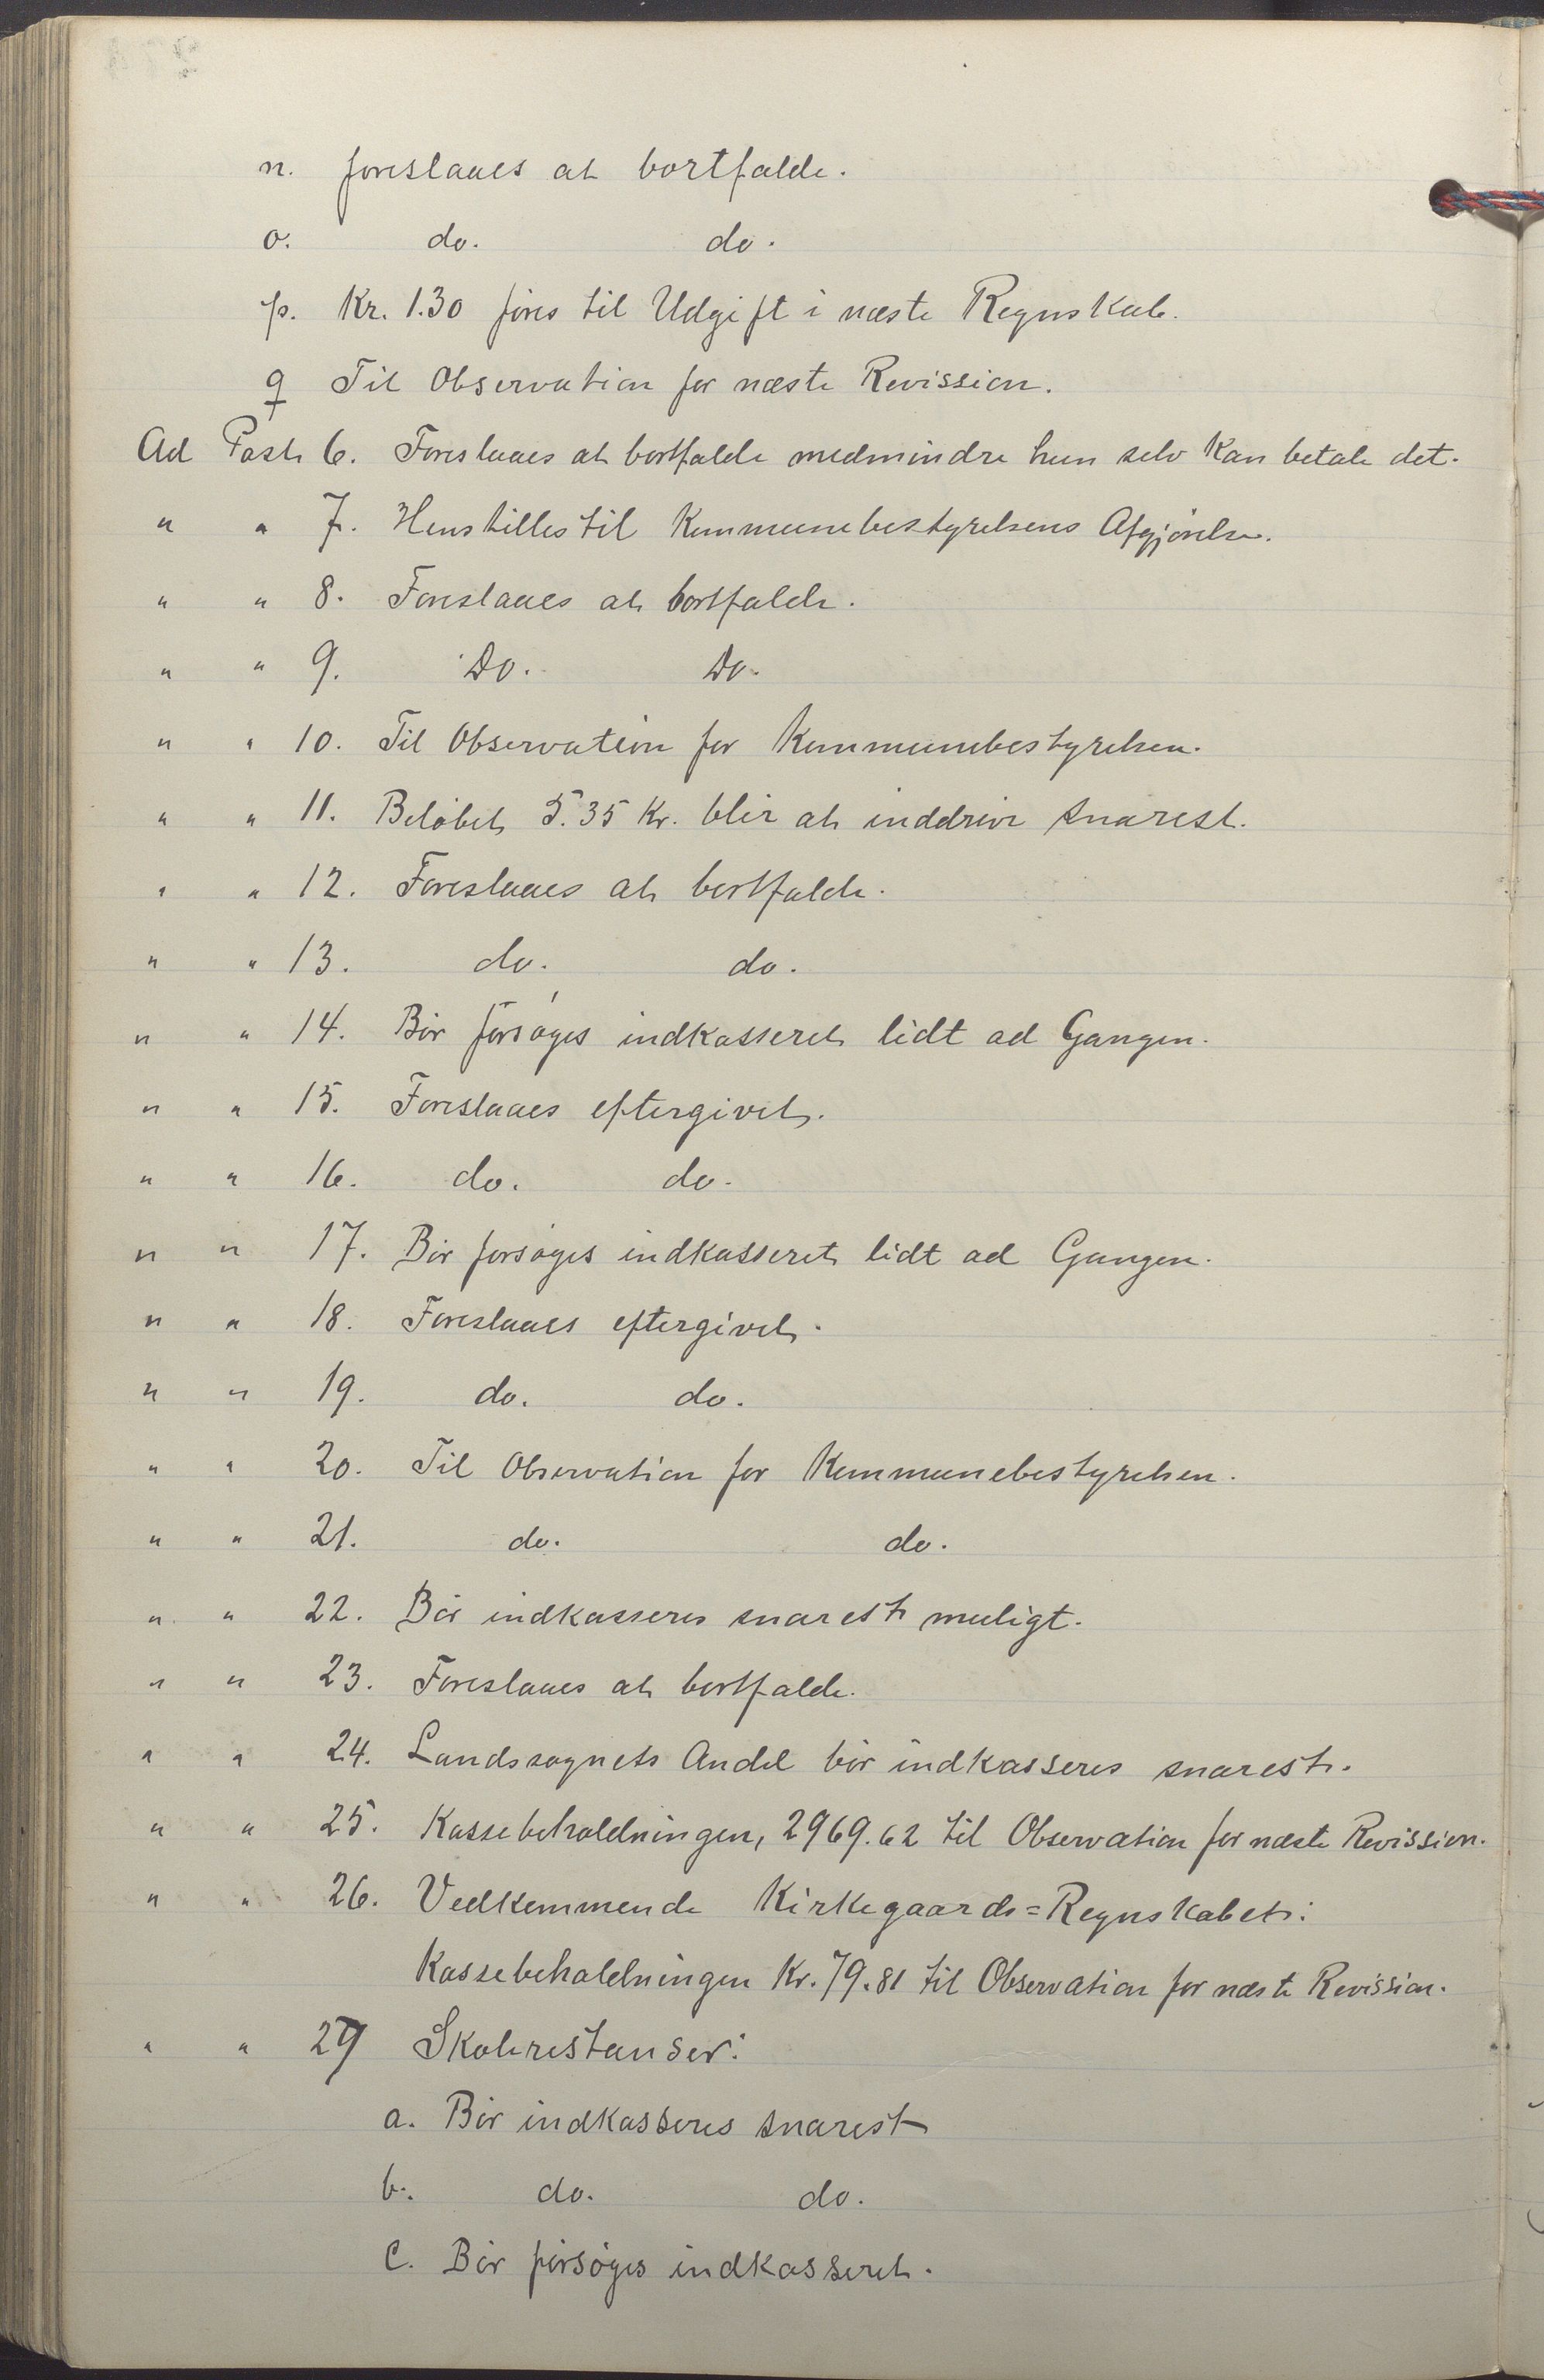 n. foreslaaes at bortfalde.
o. do. do.
p. Kr. 1.30 føres til Udgift i næste Regnskab.
q Til Observation for næste Revission.
Ad Post 6. Foreslaaes at bortfalde medmindre hun selv kan betale det.
" " 7. Henstilles til Kommunebestyrelsens Afgjørelse.
" " 8. Foreslaaes at bortfalde.
" " 9. Do. Do.
" " 10. Til Observation for Kommunebestyrelsen.
" " 11. Beløbet 5.35 Kr. blir at inddrive snarest.
" " 12. Foreslaaes at bortfalde.
" " 13. do. do.
" " 14. Bør forsøges indkasseret lidt ad Gangen.
" " 15. Foreslaaes eftergivet.
" " 16. do. do.
" " 17. Bør forsøges indkasseret lidt ad Gangen.
" " 18. Foreslaaes eftergivet.
" " 19. do. do.
" " 20. Til Observation for Kommunebestyrelsen.
" " 21. do. do.
" " 22. Bør indkasseres snarest muligt.
" " 23. Foreslaaes at bortfalde.
" " 24. Landssognets Andel bør indkasseres snarest.
" " 25. Kassebeholdningen, 2969.62 til Observation for næste Revission.
" " 26. Vedkommende Kirkegaards=Regnskabet:
Kassebeholdningen Kr. 79.81 til Observation for næste Revission.
" " 27 Skolerestanser:
a. Bør indkasseres snarest
b. do. do.
c. Bør forsøges indkasseret.